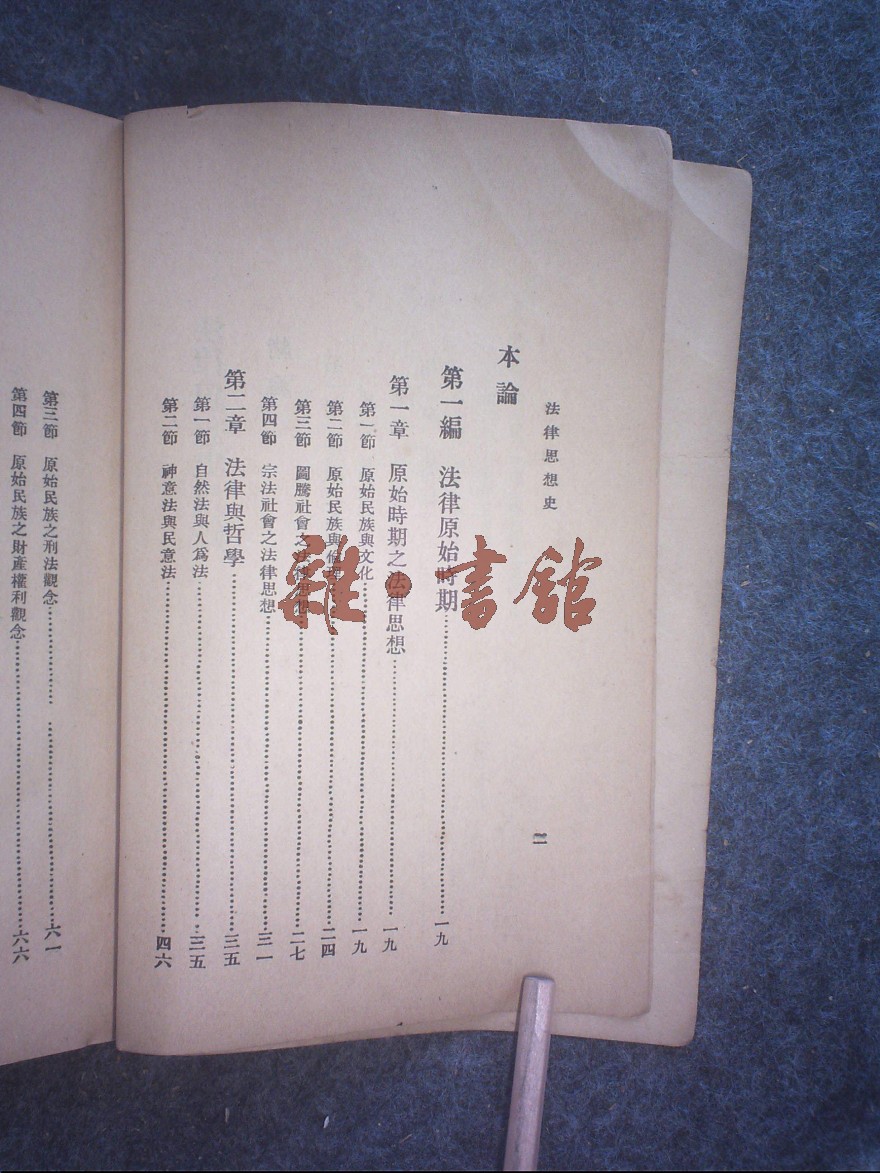 法律思想史
二
本論
第一編 法律原始時期……一九
第一章 原始時期之法律思想……一九
第一節 原始民族與文化……一九
第二節 原始民族與……二四
第三節 圖騰社會之法律思想……二七
第四節 宗法社會之法律思想……三一
第二章 法律與哲學……三五
第一節 自然法與人爲法……三五
第二節 神意法與民意法……四六
第三節 原始民族之刑法觀念……六一
第四節 原始民族之財產權利觀念……六六
雜·書館